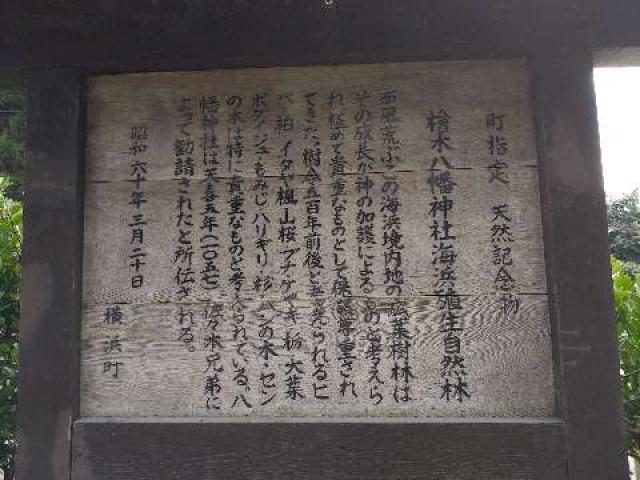 町指定 天然記念物
檜木八幡神社海浜植生自然林
西風荒ぶこの海浜境内地の広葉樹林は
その成長が神の加護によるものと考えら
れ極めて貴重なものとして保護尊重され
てきた。樹令五百年前後と考えられるヒ
バ、柏・イタヤ楓・山桜・ブナ・ケヤキ・栃・大葉
ボダイジュ・もみじ・ハリギリ・杉、八つの木・セン
の木は特に貴重なものと考えられている。八
幡神社は天喜五年(一〇五七)佐々木兄弟に
よって勧請されたと所伝される。
昭和六十年三月二十日
横浜町